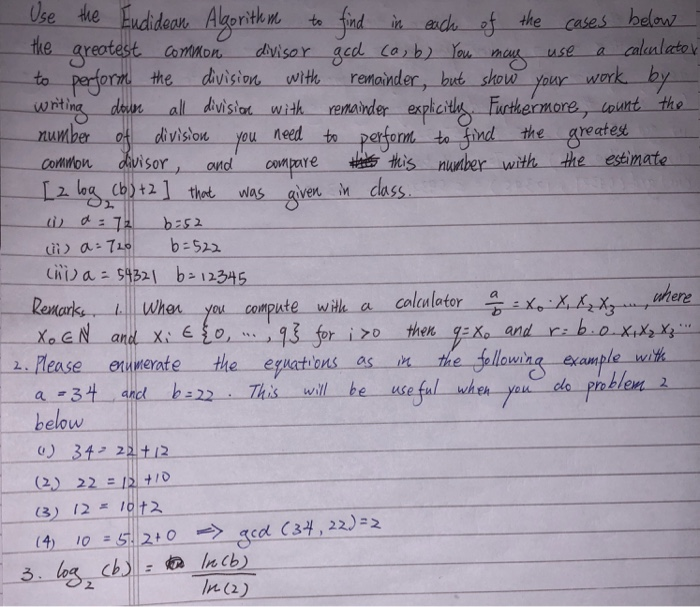 Use the Euclidean Algorithm to find in each of the cases below
the greatest common divisor gcd (a, b) You may use a calculator
to perform the division with remainder, but show your work by
writing down all division with remainder explicitly. Furthermore, count the
number of division you need to perform to find the greatest
common divisor, and compare this number with the estimate
[2 log₂ (b)+2] that was given in class.
(i) a = 72 b=52
(ii) a=720 b=522
(iii) a = 54321 b=12345
Remarks. 1. When you compute with a calculator a/b = X₀.X₁X₂X₃..., where
X₀ ∈ N and Xᵢ ∈ {0, ..., 9} for i>0 then q=X₀ and r= b·0.X₁X₂X₃...
2. Please enumerate the equations as in the following example with
a =34 and b=22. This will be useful when you do problem 2
below
(1) 34= 22+12
(2) 22 = 12+10
(3) 12 = 10+2
(4) 10 =5·2+0 => gcd (34,22)=2
3. log₂ (b) = ln(b)/ln(2)